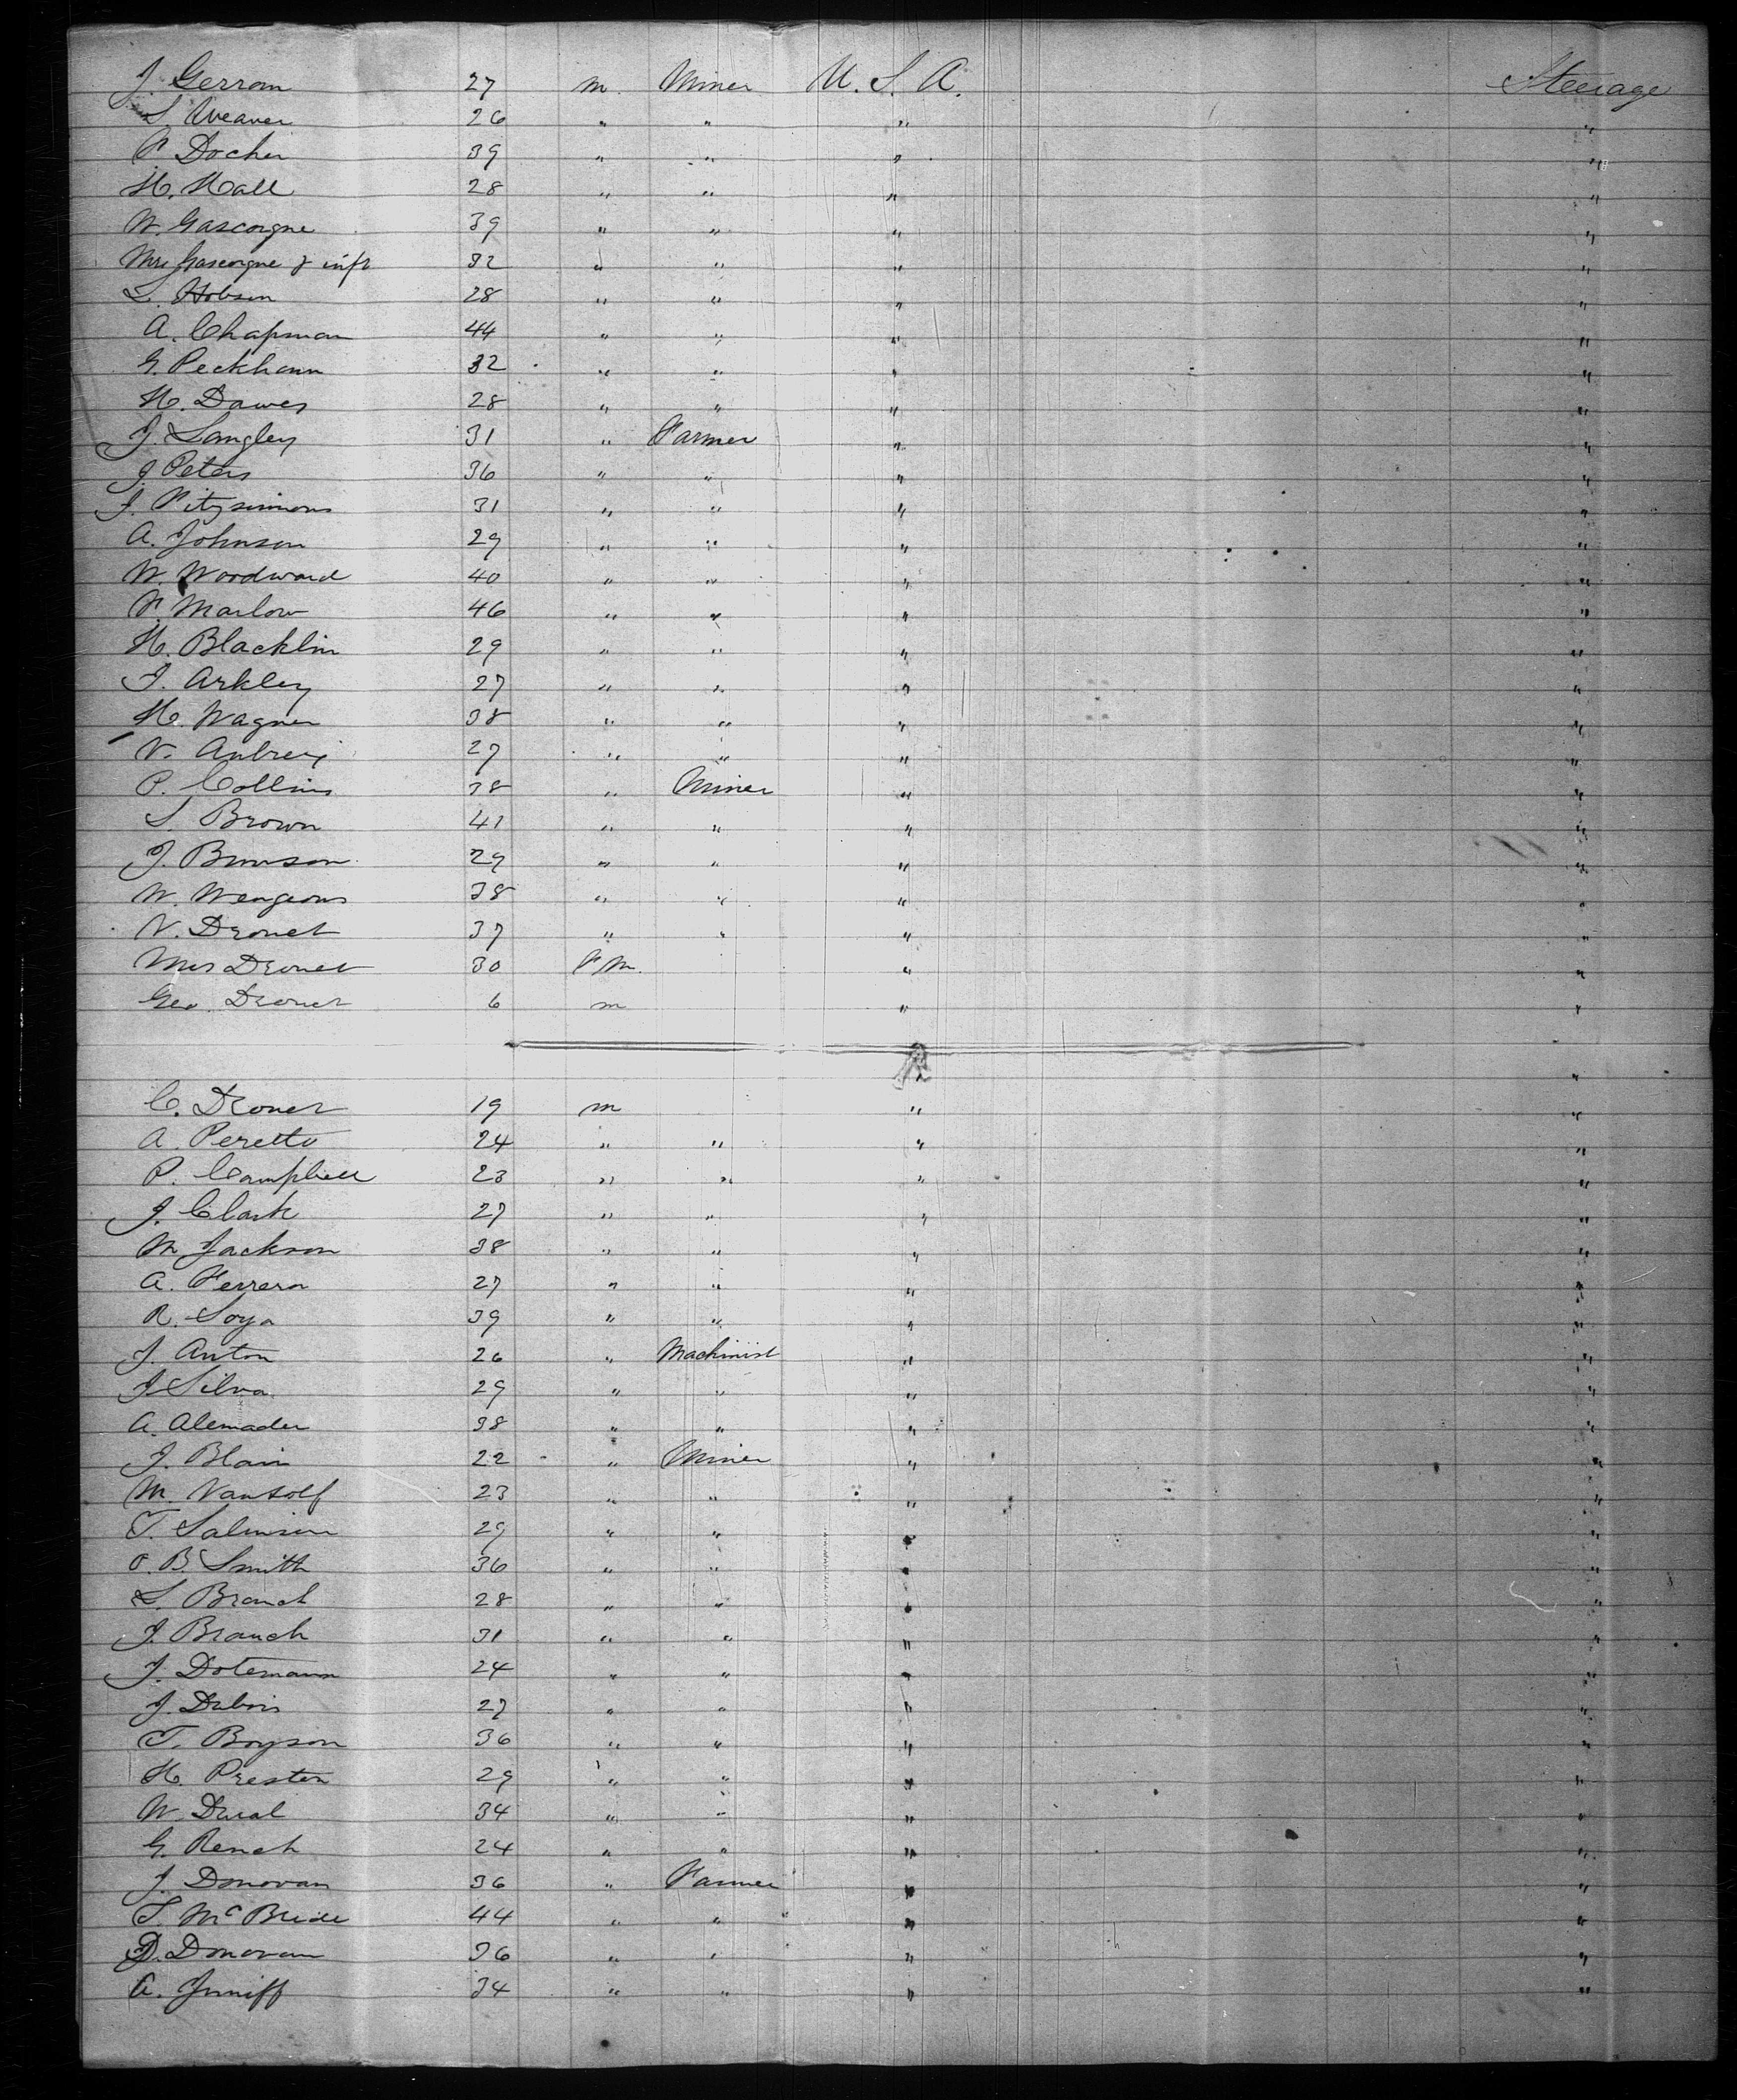 J. Gerrom 27 m. Miner U. S. A. Steerage
S. Weaver 26 " " " "
P. Docher 39 " " " "
H. Hall 28 " " " "
W. Gascoigne 39 " " " "
Mrs Gascoigne & inft 32 " " " "
L. Hobson 28 " " " "
A. Chapman 44 " " " "
G. Peckham 32 " " " "
H. Dawes 28 " " " "
J. Langley 31 " Farmer " "
J. Peters 36 " " " "
J. Fitzsimmons 31 " " " "
A. Johnson 29 " " " "
W. Woodward 40 " " " "
F. Marlow 46 " " " "
H. Blacklin 29 " " " "
J. Arkley 27 " " " "
H. Wagner 38 " " " "
V. Aubrey 27 " " " "
P. Collins 38 " Miner " "
S. Brown 41 " " " "
J. Brunson 29 " " " "
W. Wengeons 38 " " " "
V. Drouet 37 " " " "
Mrs Drouet 30 Fm. " "
Geo. Drouet 6 m " "
"
C. Drouet 19 m " "
A. Peretto 24 " " " "
P. Campbell 23 " " " "
J. Clark 27 " " " "
M. Jackson 38 " " " "
A. Ferrera 27 " " " "
R. Soya 39 " " " "
J. Anton 26 " Machinist " "
J. Silva 29 " " " "
A. Alemader 38 " " " "
J. Blain 22 " Miner " "
M. Vantolf 23 " " " "
T. Salmison 29 " " " "
O. B. Smith 36 " " " "
S. Branch 28 " " " "
J. Branch 31 " " " "
J. Dotemann 24 " " " "
J. Dubois 27 " " " "
T. Boyson 36 " " " "
H. Preston 29 " " " "
W. Dural 34 " " " "
G. Rench 24 " " " "
J. Donovan 36 " Farmer " "
T. McBride 44 " " " "
D. Donovan 36 " " " "
A. Junniff 34 " " " "